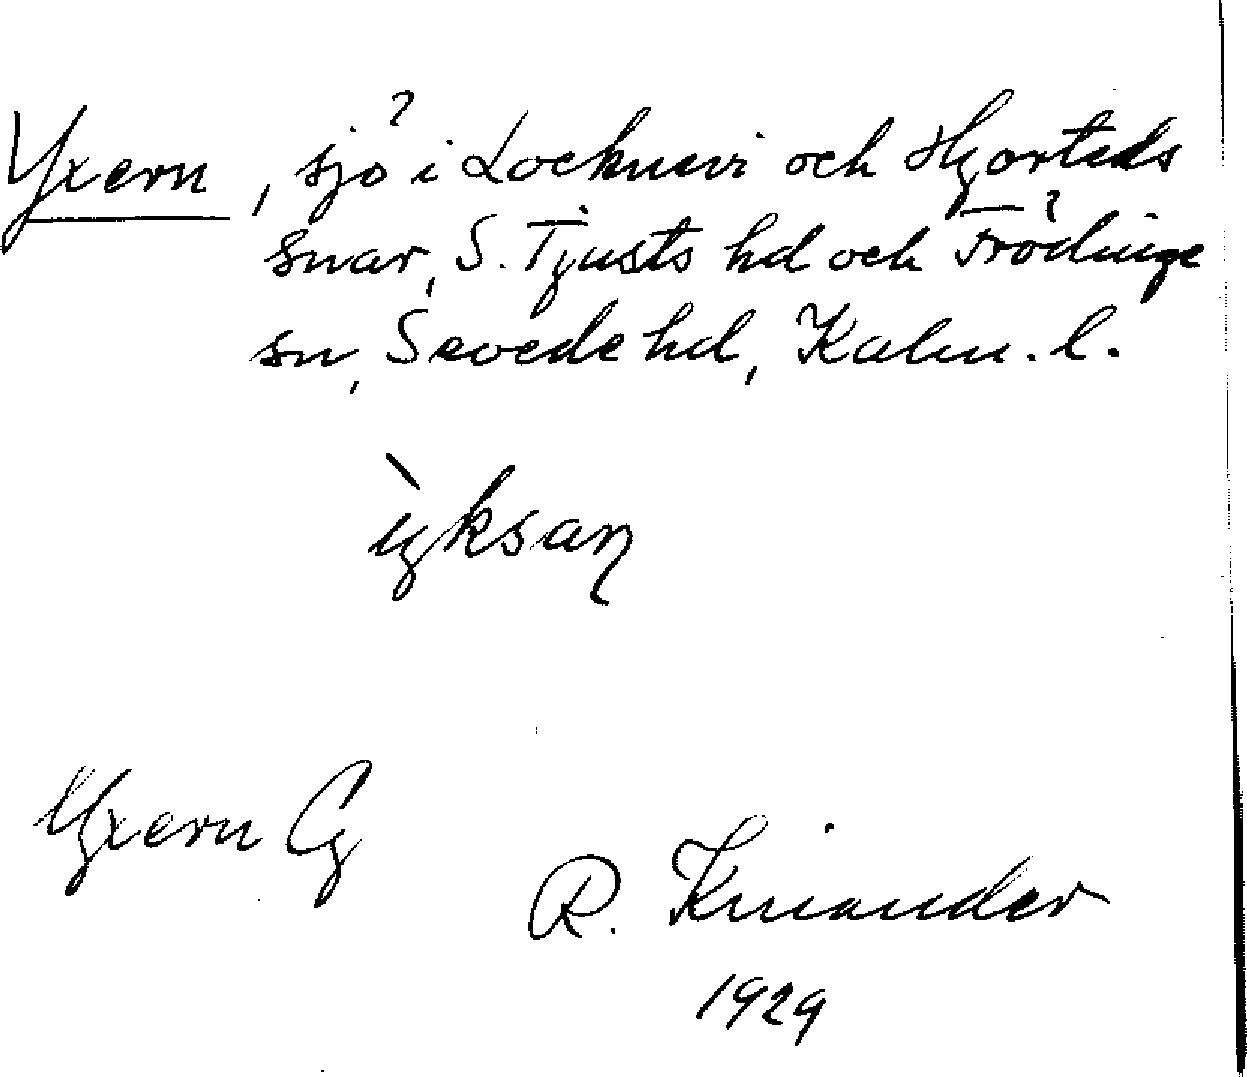 Yxern, sjö i Locknevi och Hjorteds
snar, S. Tjusts hd och Frödinge
sn, Sevede hd, Kalm. l.
ỳksaɳ
Yxern Cg
R. Kniander
1929